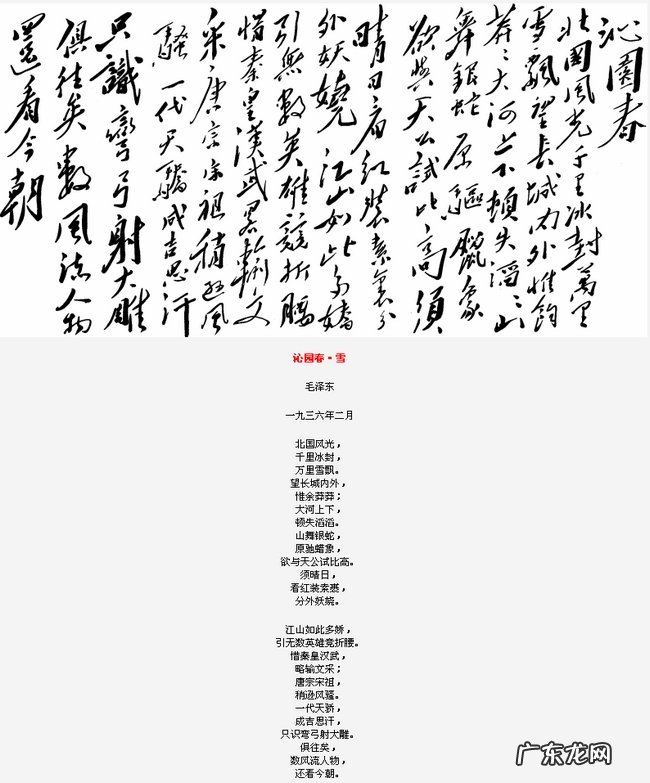 沁園春
北國風光千里冰封萬里
雪飄望長城內外惟餘
莽〻大河上下頓失滔〻山
舞銀蛇原驅臘象
欲與天公試比高須
晴日看紅裝素裹分
外妖嬈江山如此多嬌
引無數英雄競折腰
惜秦皇漢武略輸文
采唐宗宋祖稍遜風
騷一代天驕成吉思汗
只識彎弓射大雕
俱往矣數風流人物
還看今朝
沁园春·雪
毛泽东
一九三六年二月
北国风光，
千里冰封，
万里雪飘。
望长城内外，
惟余莽莽；
大河上下，
顿失滔滔。
山舞银蛇，
原驰蜡象，
欲与天公试比高。
须晴日，
看红装素裹，
分外妖娆。
江山如此多娇，
引无数英雄竞折腰。
惜秦皇汉武，
略输文采；
唐宗宋祖，
稍逊风骚。
一代天骄，
成吉思汗，
只识弯弓射大雕。
俱往矣，
数风流人物，
还看今朝。
广东龙网